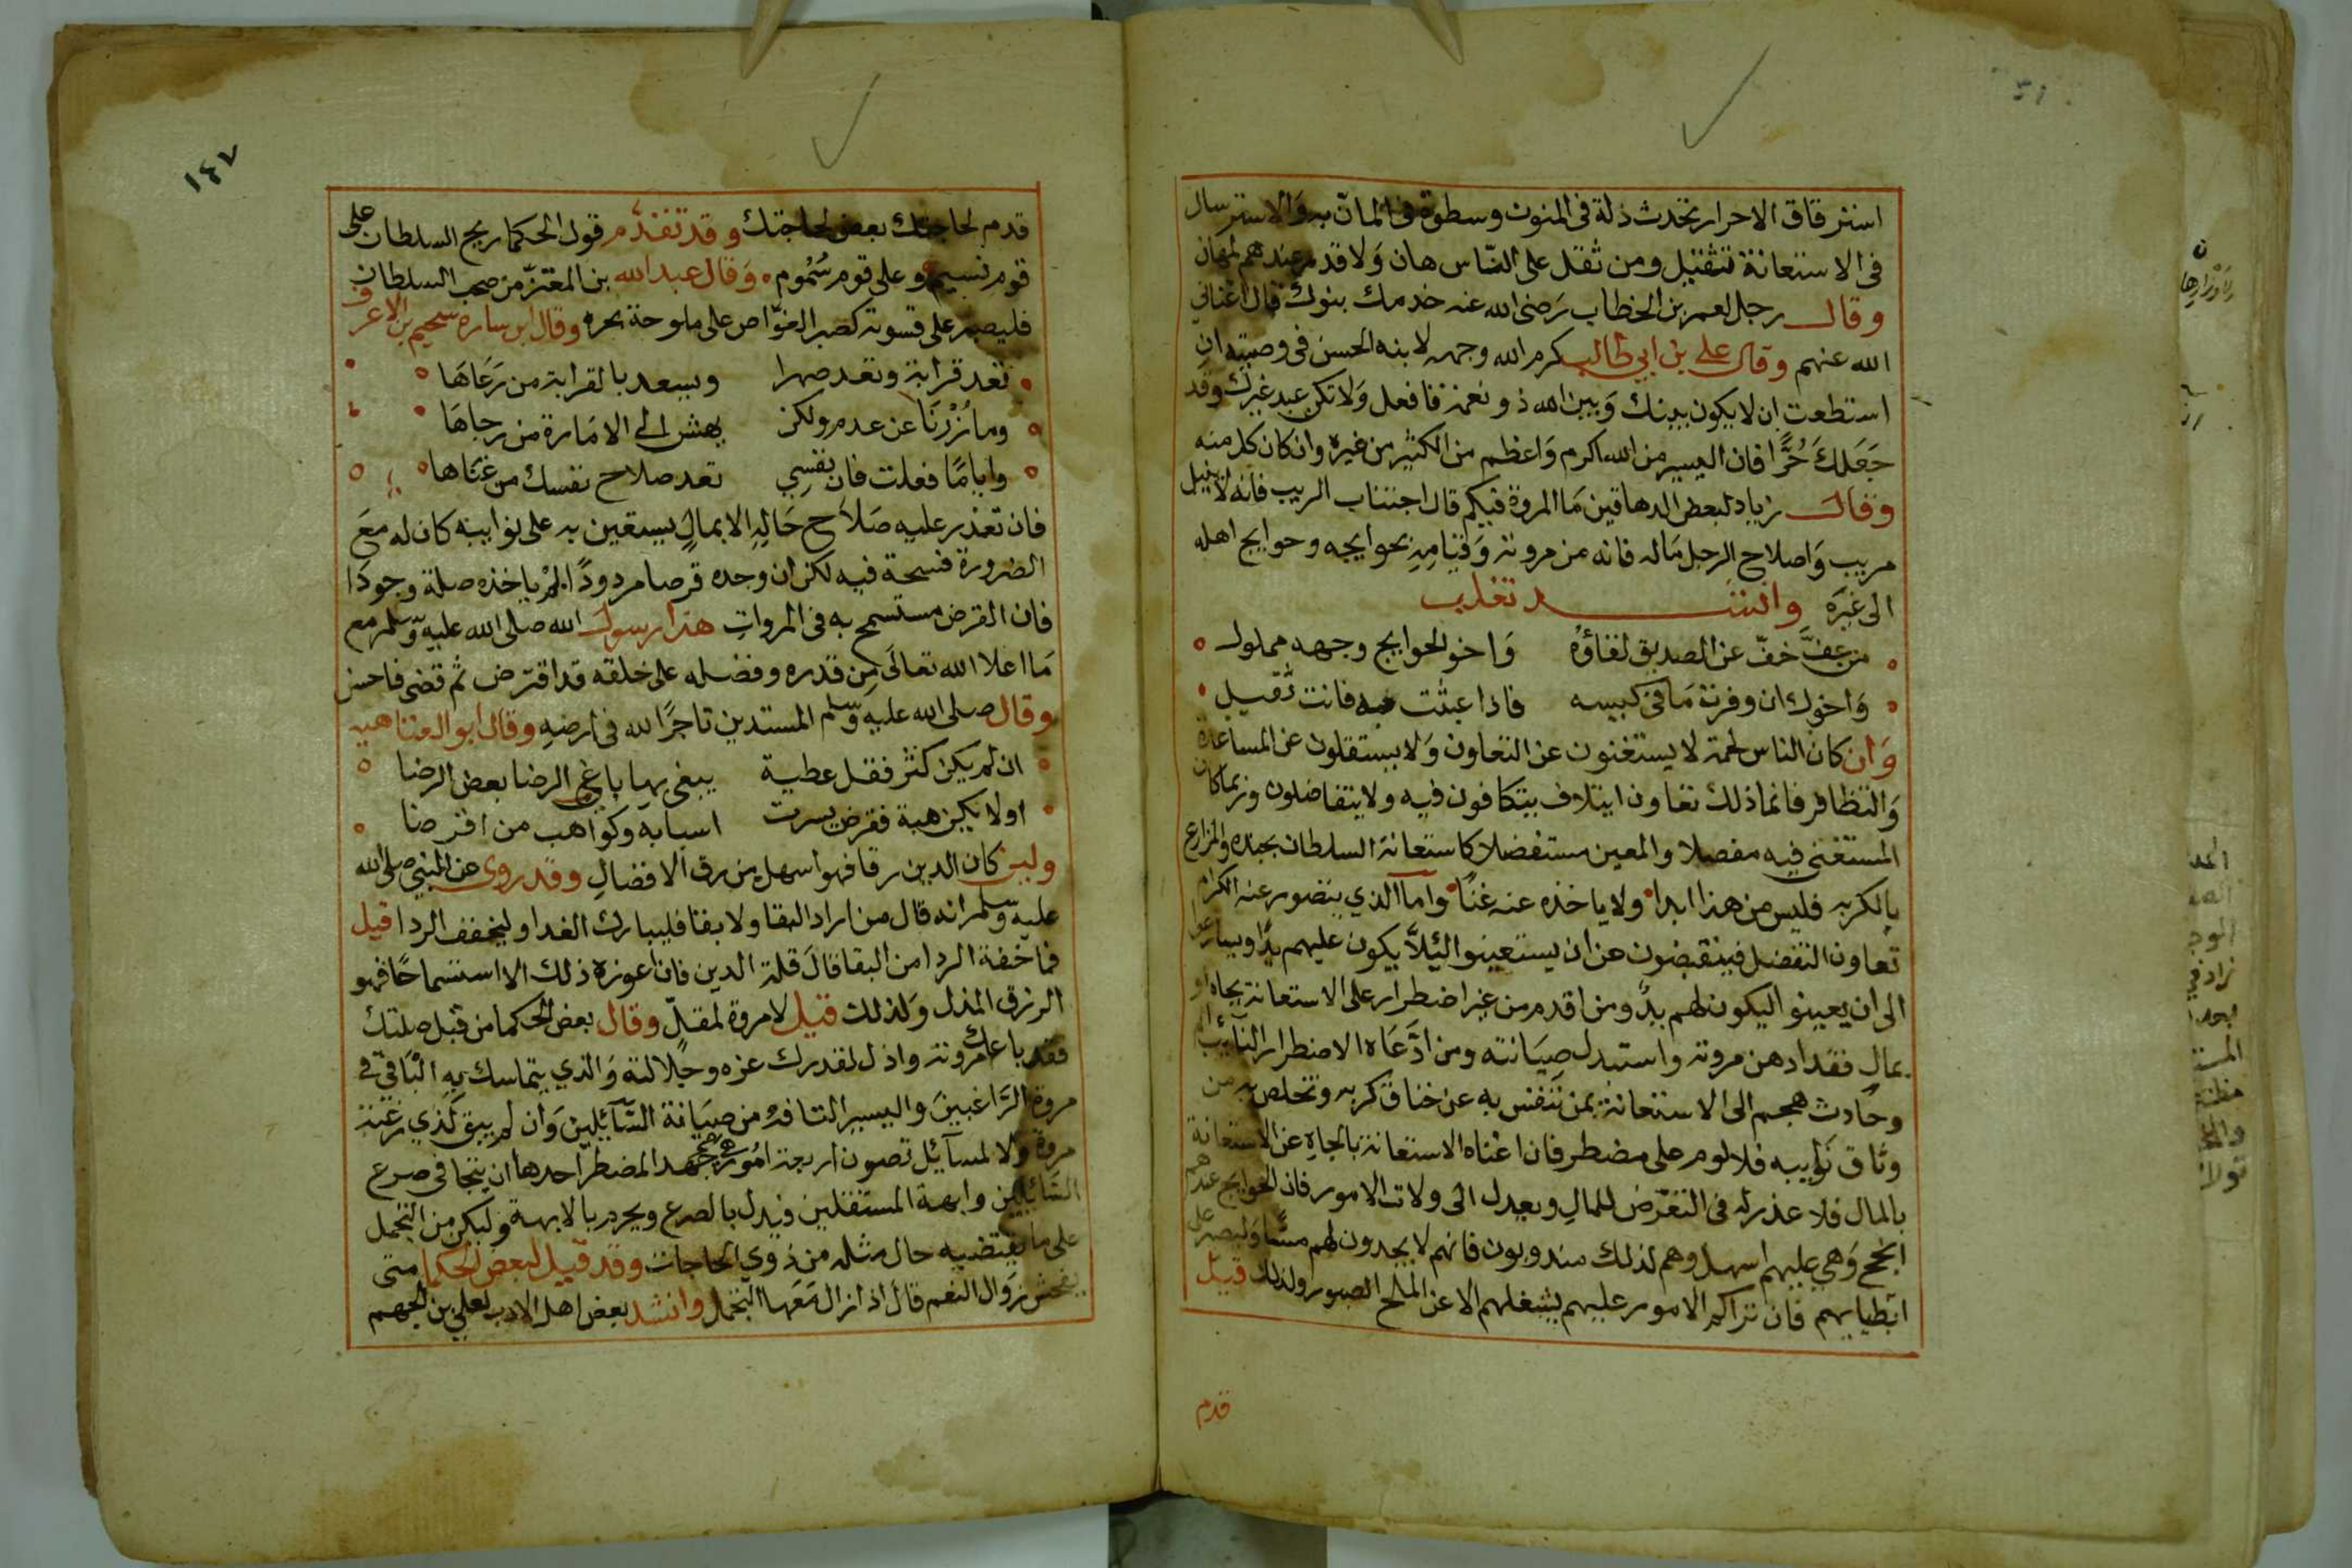 استرقاق الاحرار تحدث ذلة فى المنون وسطوة فى المانّ به والاسترسال
فى الاستعانة تثقيل ومن ثقل على النّاس هان وَلا قدم عندهم لمهان
وقال رجل لعمر بن الخطاب رَضى الله عنه خدمك بنوك فقال اغنانى
الله عنهم وقال على بن ابي طالب كرم الله وجهه لابنه الحسن فى وصيته ان
استطعت ان لا يكون بينك وَبين الله ذو نعمة فافعل وَلا تكن عبد غيرك وقد
جَعَلكَ حُرًّا فان اليسير من الله اكرم وَاعظم من الكثير من غيره وان كان كل منه
وقال زياد لبعض الدهاقين مَا المروة فيكم قال اجتناب الريب فانه لا ينبل
مريب وَاصلاح الرجل مَاله فانه من مروته وَقيامِهِ بحوايجه وحوايج اهله
الى غيرَه وانشد تغلب
من عفَّ خفّ عن الصديق لقاؤهُ وَاخو الحوايج وجهه مملول
وَاخوك ان وفرت مَا فى كيسه فاذا عبثت به فانت ثقيل
وَان كان الناس لحمة لا يستغنون عن التعاون وَلا يستقلون عن المساعدة
وَالتظافر فانما ذلك تعاون ايتلاف يتكافون فيه ولا يتفاضلون وربما كان
المستغنى فيه مفضلا والمعين مستفضلا كاستعانة السلطان بجنده والمزارع
بالكربه فليس من هذا ابدا ولا ياخذه عنه غنًا واما الذي يتصور عنه الكرام
تعاون التفضل فينقبضون عن ان يستعينوا ليئلاَّ يكون عليهم يدًا ويسارعوا
الى ان يعينوا ليكون لهم يدً ومن اقدم من غير اضطرار على الاستعانة بجاه او
بمال فقد ادهن مروته واستبدل صِيَانته ومن ادَّعَاه الاضطرار النايب
وحَادث هجم الى الاستعانة بمن تنفس به عن خناق كربه وتخلص به من
وثاق نَوايبه فلا لوم على مضطر فان اغناه الاستعانة بالجاهِ عن الاستعانة
بالمال فلا عذر له فى التعرّض للمالِ ويعدل الى ولات الامور فان الحوايج عندهم
انجح وَهي عليهم اسهل وهم لذلك مندوبون فانهم لا يجدون لهم مسًّا وَليصبر على
ابطيايهم فان تراكم الامور عليهم يشغلهم الا عن الملح الصبور ولذلك قيل
قدم
١٤٧
قدم لحاجتك بعض لحاجتك وقد تقدّم قول الحكما ريح السلطان على
قوم نسيم وعلى قوم سُمُوم وَقال عبد الله بن المعتزّ من صحب السلطان
فليصبر على قسوته كصبر الغوّاص على ملوحة بحره وقال ابن ساره سحيم بن الاعرف
تعد قرابة وتعد صهرا ويسعد بالقرابة من رَعَاهَا
وما زُرْنَا عن عدم ولكن يهش الى الامَارة من رجاهَا
وايامًا فعلت فان نفسِي تعد صلاح نفسك من غنَاها
فان تعذر عليه صَلاَح حَالِهِ الا بمالٍ يستعين به على نوايبه كان له معَ
الضرورة فسحة فيه لكن ان وجده قرضا مردودًا لم ياخذه صلة وجودًا
فان القرض مستسمح به فى المرواتِ هذا رسول الله صلى الله عليه وسلم مع
مَا اعلا الله تعالَى مِن قدره وفضله على خلقه قد اقترض ثم قضى فاحسن
وقال صلى الله عليه وسلم المستدين تاجرًا لله فى ارضهِ وقال ابو العتاهيه
ان لم يكن كثر فقل عطية يبغى بها باغى الرضا بعض الرضا
اولا يكن هبة فقرض يسرت اسبابه وكواهب من اقرضا
ولين كان الدين رقا فهو اسهل من رق الافضالِ وقد روى عن النبي صلى الله
عليه وسلم انه قال من اراد البقا ولا بقا فليبارك الغدا وليخفف الردا قيل
فما خفة الردا من البقا قالَ قلة الدين فان اعوزه ذلك الا استسماحًا فهو
الرزق المذل وَلذلك قيل لا مروة لمقلّ وقال بعض الحكما من قبل صلتك
فقد باعك مروته واذل لقدرك عزه وجلالته وَالذي يتماسك بهِ الباقى فى
مروة الرَّاغبينَ واليسير التافهُ من صِيَانة السَّآئِلين وَان لم يبق لذي رغبة
مروة وَلا لمسآئل تصون اربعة امُور هي جهد المضطر احدها ان يتجافى صرع
السَّائِلين وابهة المستقلين فيذل بالصرع ويحرم بالابهة وليكن من التجمل
على ما يقتضيه حال مثله من ذوي الحاجات وقد قيل لبعض الحكما متى
يفحش زَوال النعم قال اذا زال مَعَها التجمل وانشد بعض اهل الادب لعلي بن الجهم